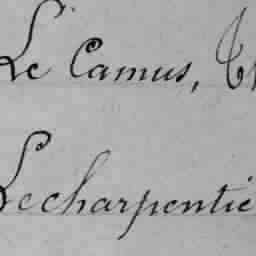 Le Camus,
Lecharpentie